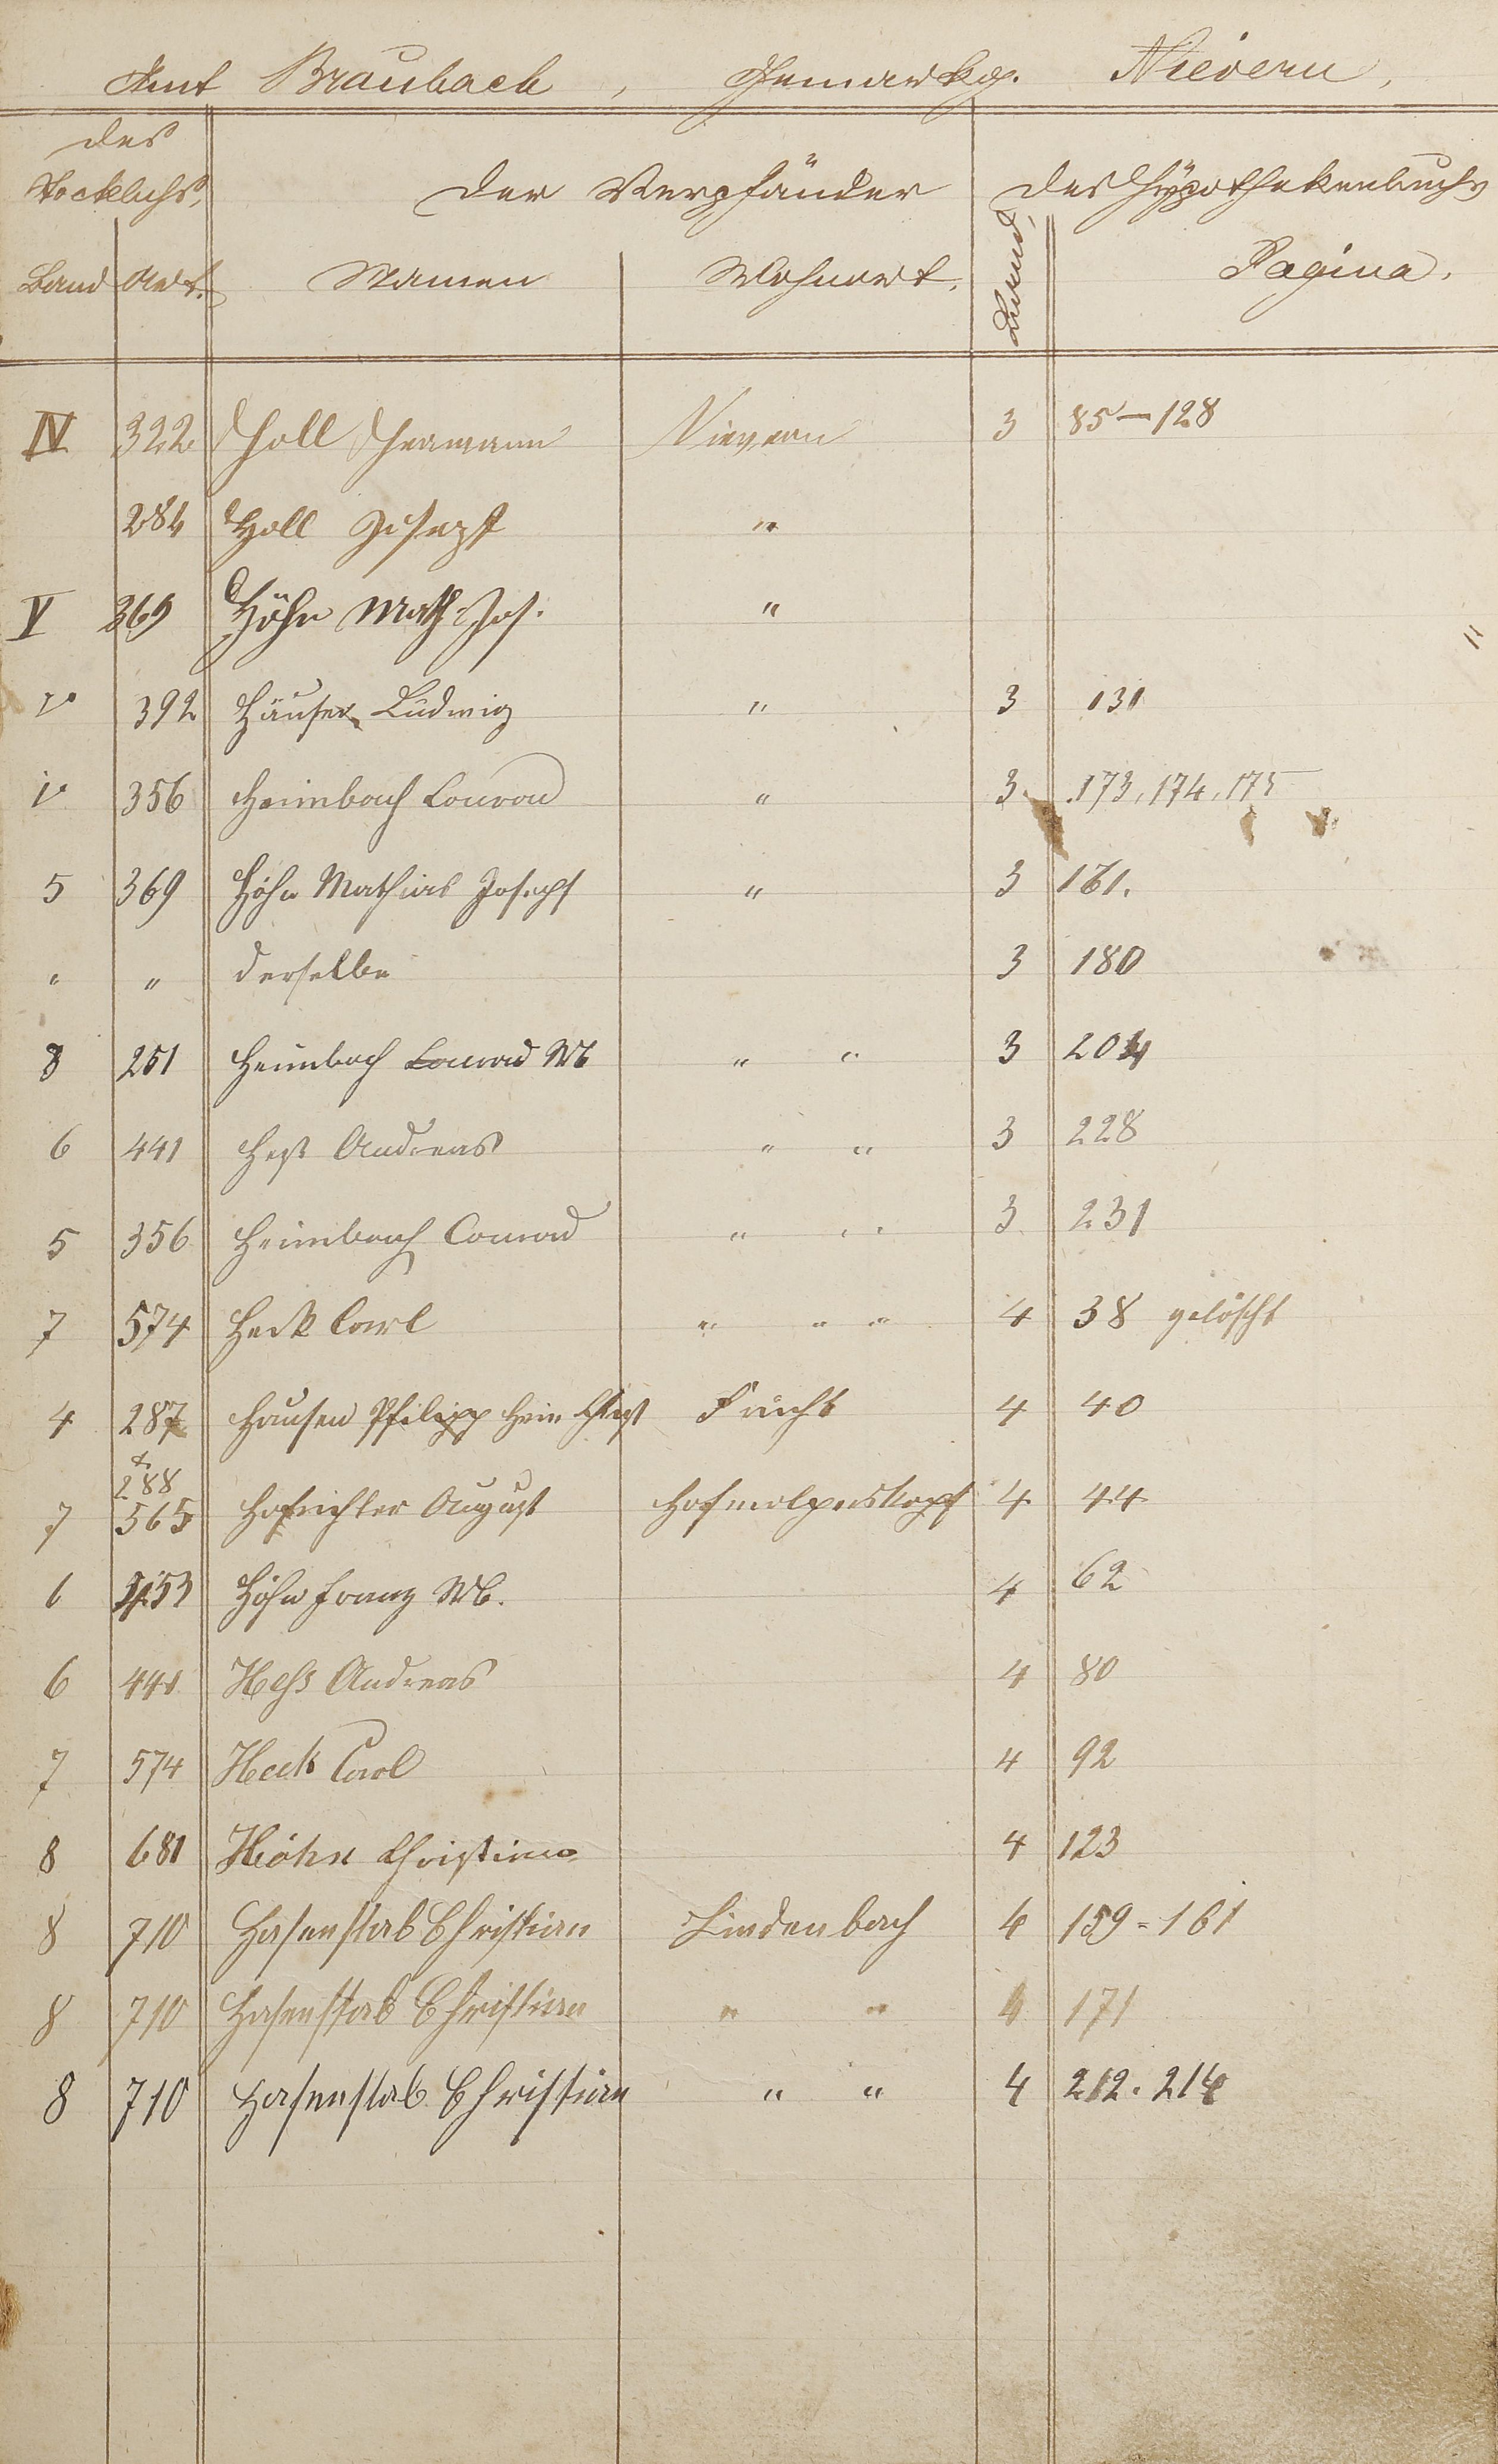 Amt Braubach, Gemarkg. Nievern,
des Stockbuchs,
Der Verpfänder
des Hÿpothekenbuchs
Band Art.
Namen
Wohnort.
Band,
Pagina.
IV 322 Holl Hermann Nievern 3 85—128
284 Holl Joseph "
V 369 Höhn Math. Jos. "
V 392 Häuser Ludwig " 3 131
V 356 Heimbach Conrad " 3 173, 174, 175
5 369 Höhn Mathias Joseph " 3 161.
" " derselbe 3 180
8 251 Heimbach Conrad Wb " " 3 204
6 441 Heß Andreas " " 3 228
5 356 Heimbach Conrad " " 3 231
7 574 Heck Carl " " " 4 38 gelöscht
4 287 Hausen Philipp Hein Frücht 4 40
+
288
7 565 Hofrichter August 4 44
6 453 Höhn Franz Wb. 4 62
6 441 Heß Andreas 4 80
7 574 Heck Carl 4 92
8 681 Höhn Christian 4 123
8 710 Hasenstab Christian Lindenbach 4 159-161
8 710 Hasenstab Christian " " 4 171
8 710 Hasenstab Christian " " 4 212. 214